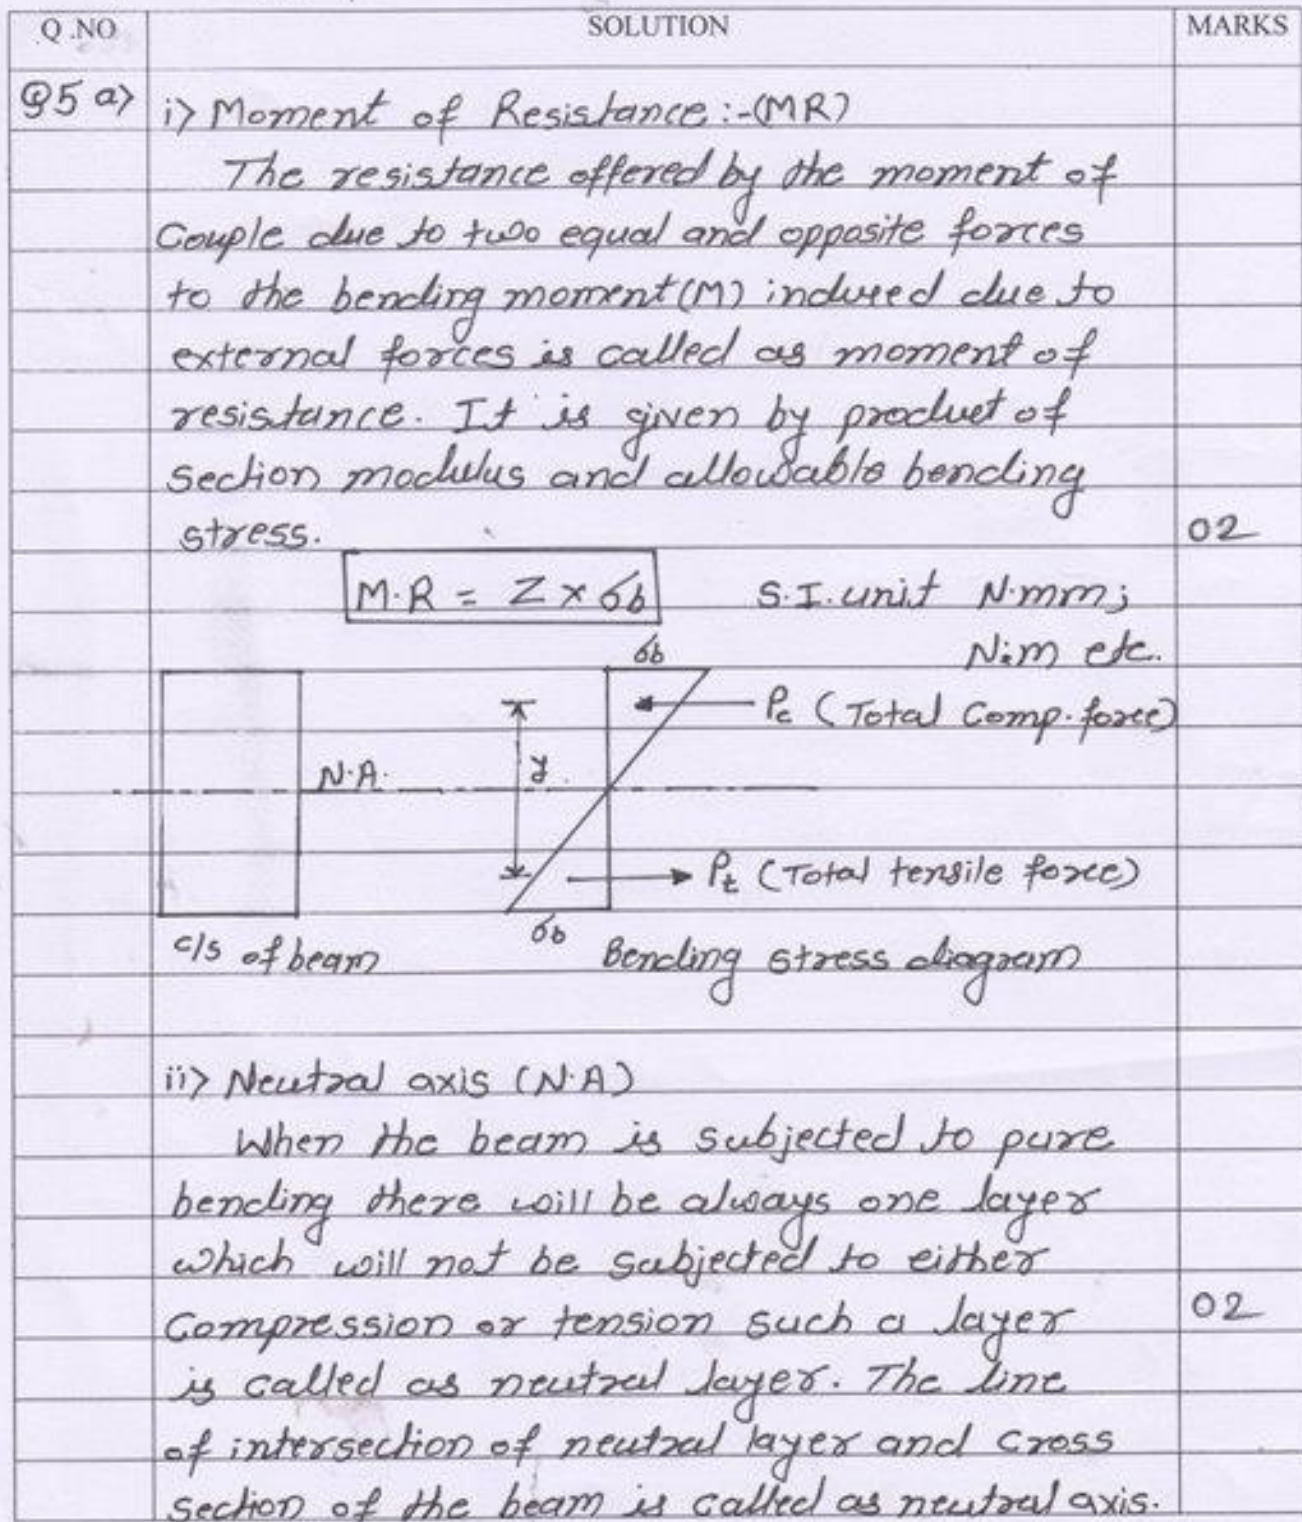 Q.NO SOLUTION MARKS
Q5 a) i) Moment of Resistance :-(MR)
The resistance offered by the moment of
Couple due to two equal and opposite forces
to the bending moment (M) induced due to
external forces is called as moment of
resistance. It is given by product of
section modulus and allowable bending
stress. 02
M.R = Z × σb S.I. unit N.mm;
N.m etc.
σb
Pc (Total Comp. force)
N.A. y
Pt (Total tensile force)
σb
c/s of beam Bending stress diagram
ii) Neutral axis (N.A)
When the beam is subjected to pure
bending there will be always one layer
which will not be subjected to either
Compression or tension such a layer 02
is called as neutral layer. The line
of intersection of neutral layer and cross
section of the beam is called as neutral axis.